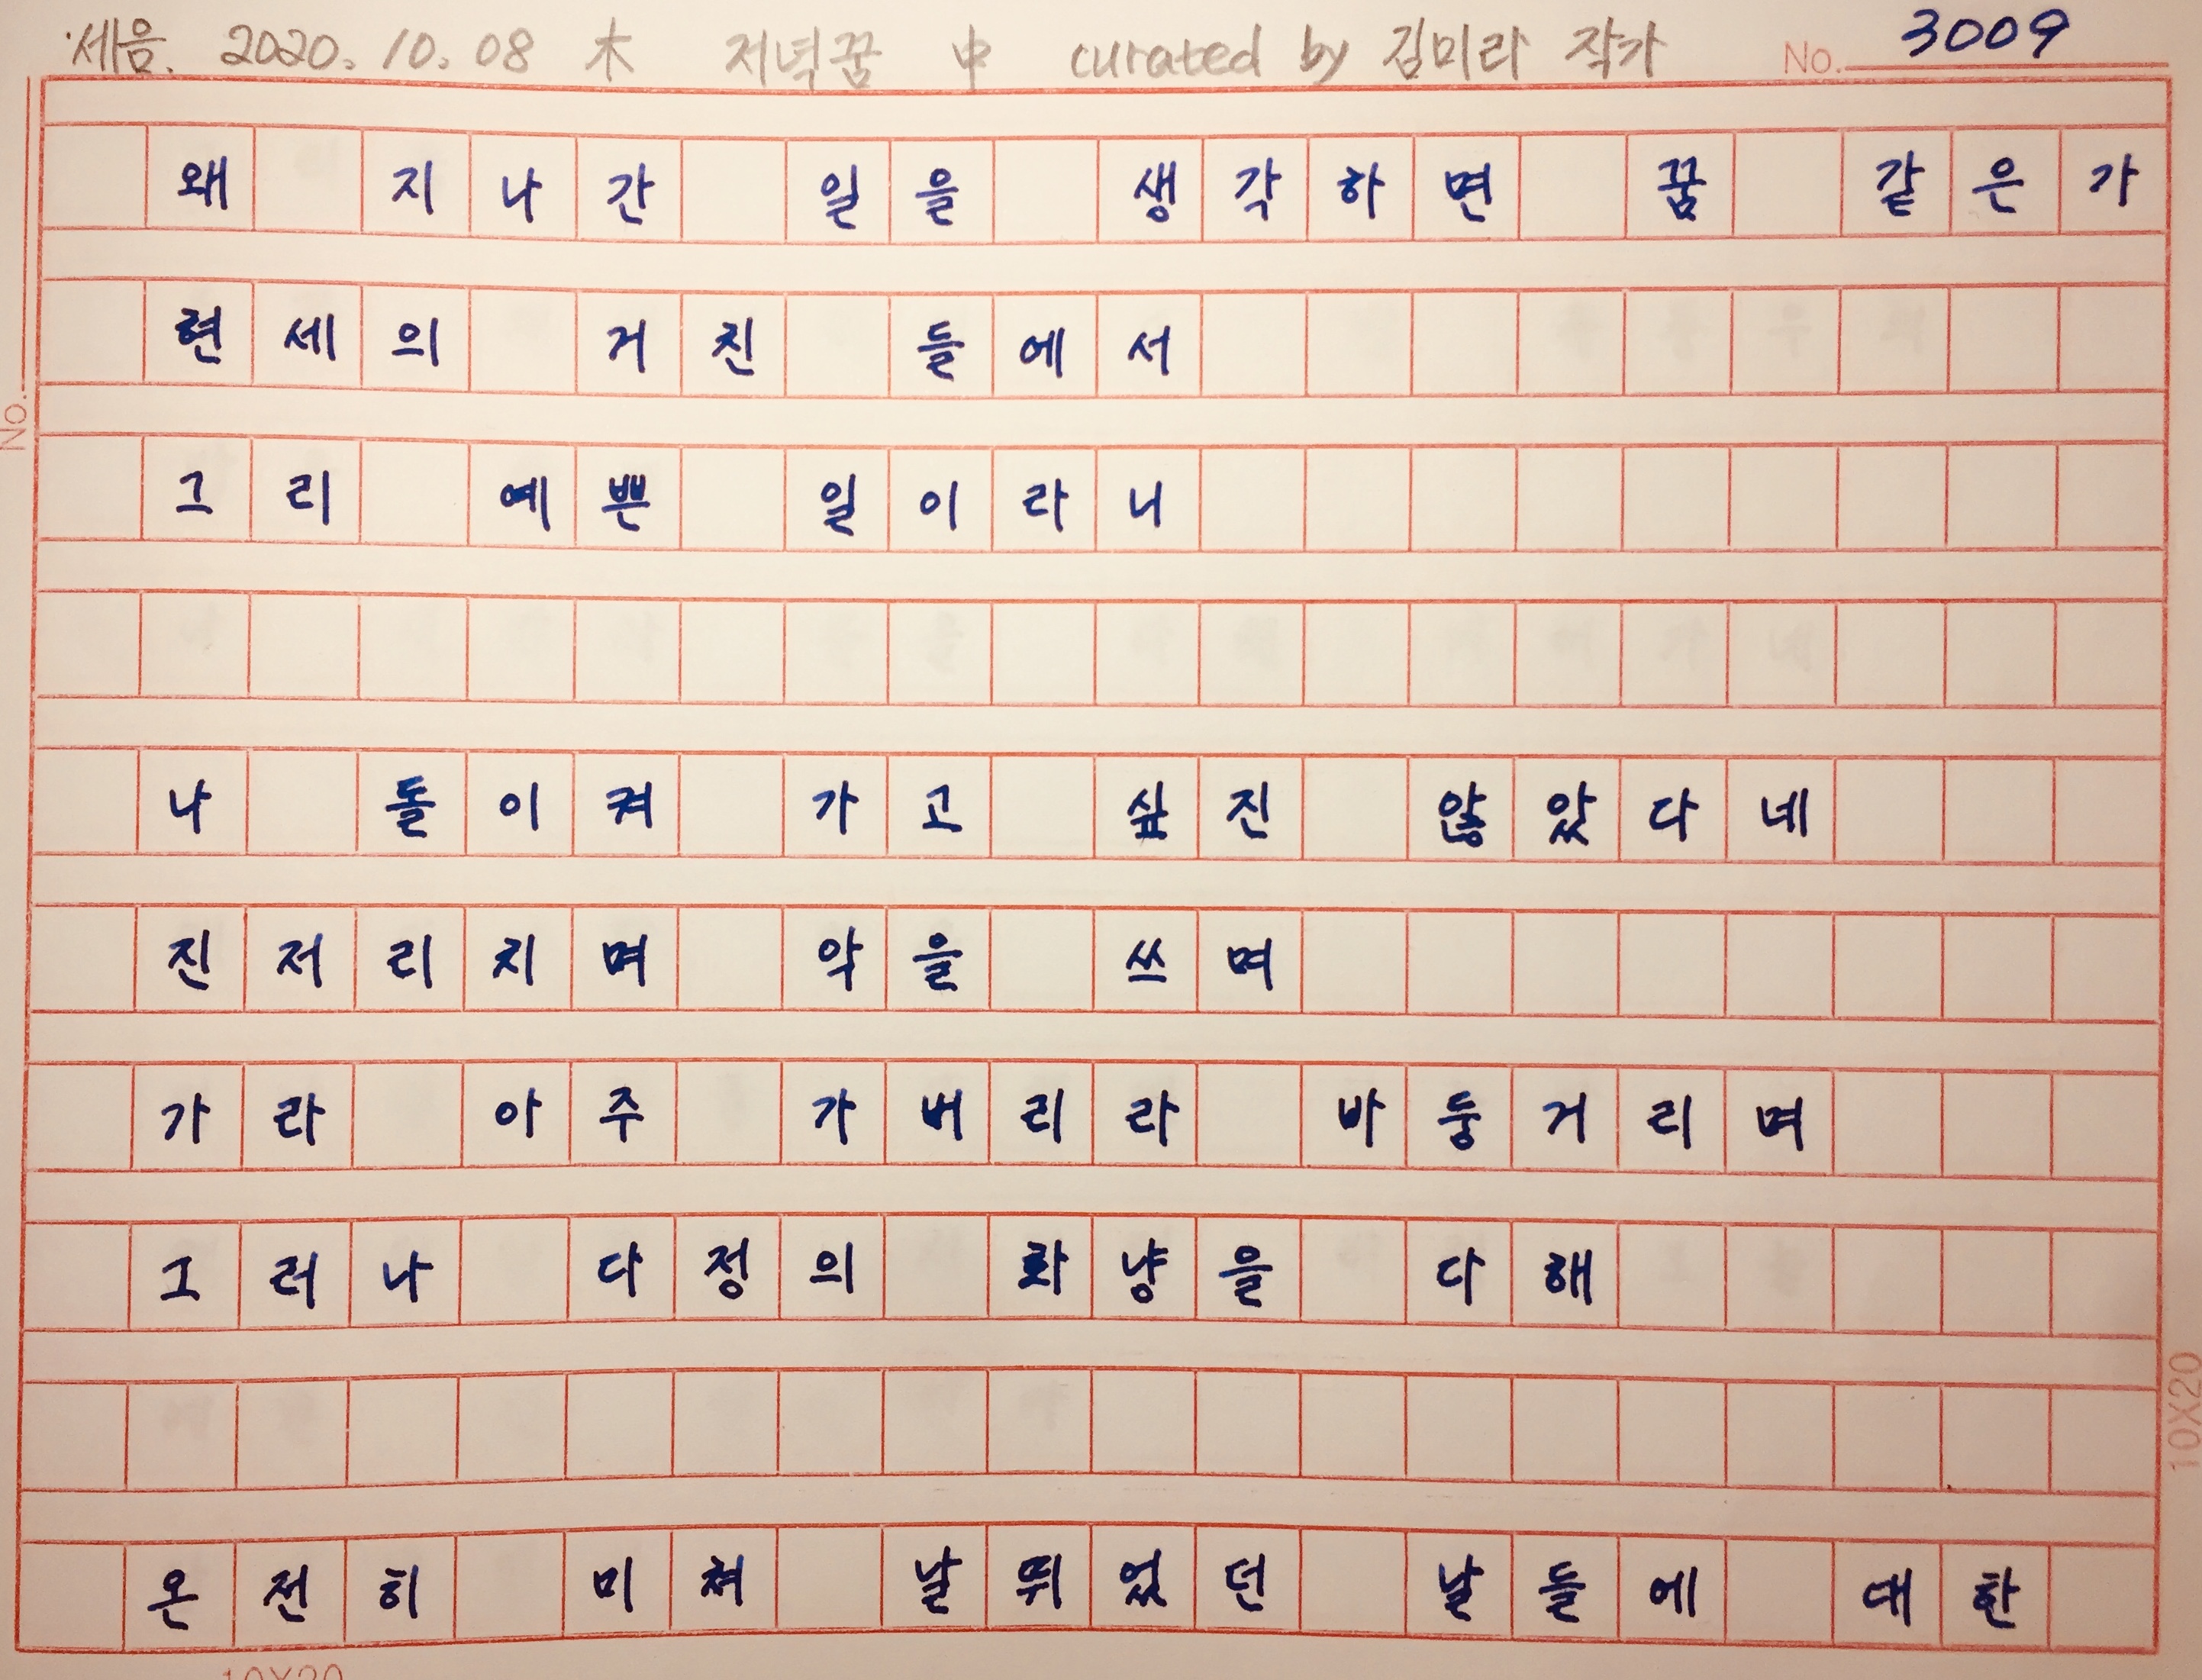 세음. 2020. 10. 08 木 저녁꿈 中 curated by 김미라 작가 No. 3009
왜 지나간 일을 생각하면 꿈 같은가
현세의 거친 들에서
No.
그리 예쁜 일이라니
나 돌이켜 가고 싶진 않았다네
진저리치며 악을 쓰며
가라 아주 가버리라 바둥거리며
그러나 다정의 화냥을 다해
10X20
온전히 미쳐 날뛰었던 날들에 대한
10X20